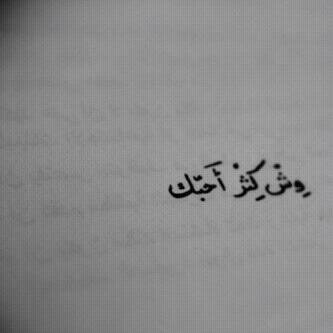 وِشْ كِثرْ أَحبّك